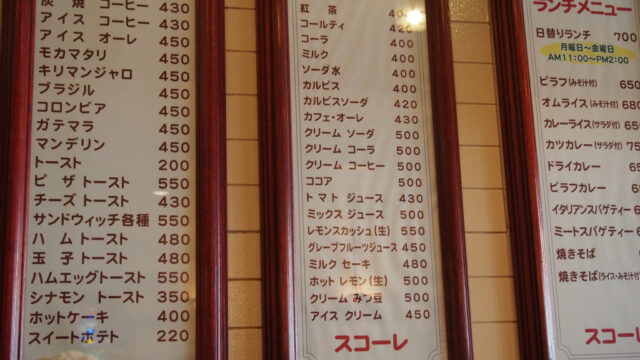 炭焼 コーヒー 430
アイス コーヒー 430
アイス オーレ 450
モカマタリ 450
キリマンジャロ 450
ブラジル 450
コロンビア 450
ガテマラ 450
マンデリン 450
トースト 200
ピザ トースト 550
チーズ トースト 430
サンドウィッチ各種 550
ハム トースト 480
玉子 トースト 480
ハムエッグトースト 550
シナモン トースト 350
ホットケーキ 400
スイートポテト 220
紅茶 400
コールティ 420
コーラ 400
ミルク 400
ソーダ水 400
カルピス 400
カルピスソーダ 420
カフェ・オーレ 430
クリーム ソーダ 500
クリーム コーラ 500
クリーム コーヒー 500
ココア 500
トマト ジュース 430
ミックス ジュース 500
レモンスカッシュ(生) 550
グレープフルーツジュース 450
ミルク セーキ 480
ホット レモン(生) 500
クリーム みつ豆 500
アイス クリーム 450
スコーレ
ランチメニュー
日替りランチ 700
月曜日〜金曜日
AM11:00〜PM2:00
ピラフ(みそ汁付) 650
オムライス(みそ汁付) 680
カレーライス(サラダ付) 650
カツカレー(サラダ付)
ドライカレー
ピラフカレー
イタリアンスパゲティー
ミートスパゲティー
焼きそば
焼きそば(ライス・みそ汁付)
スコーレ